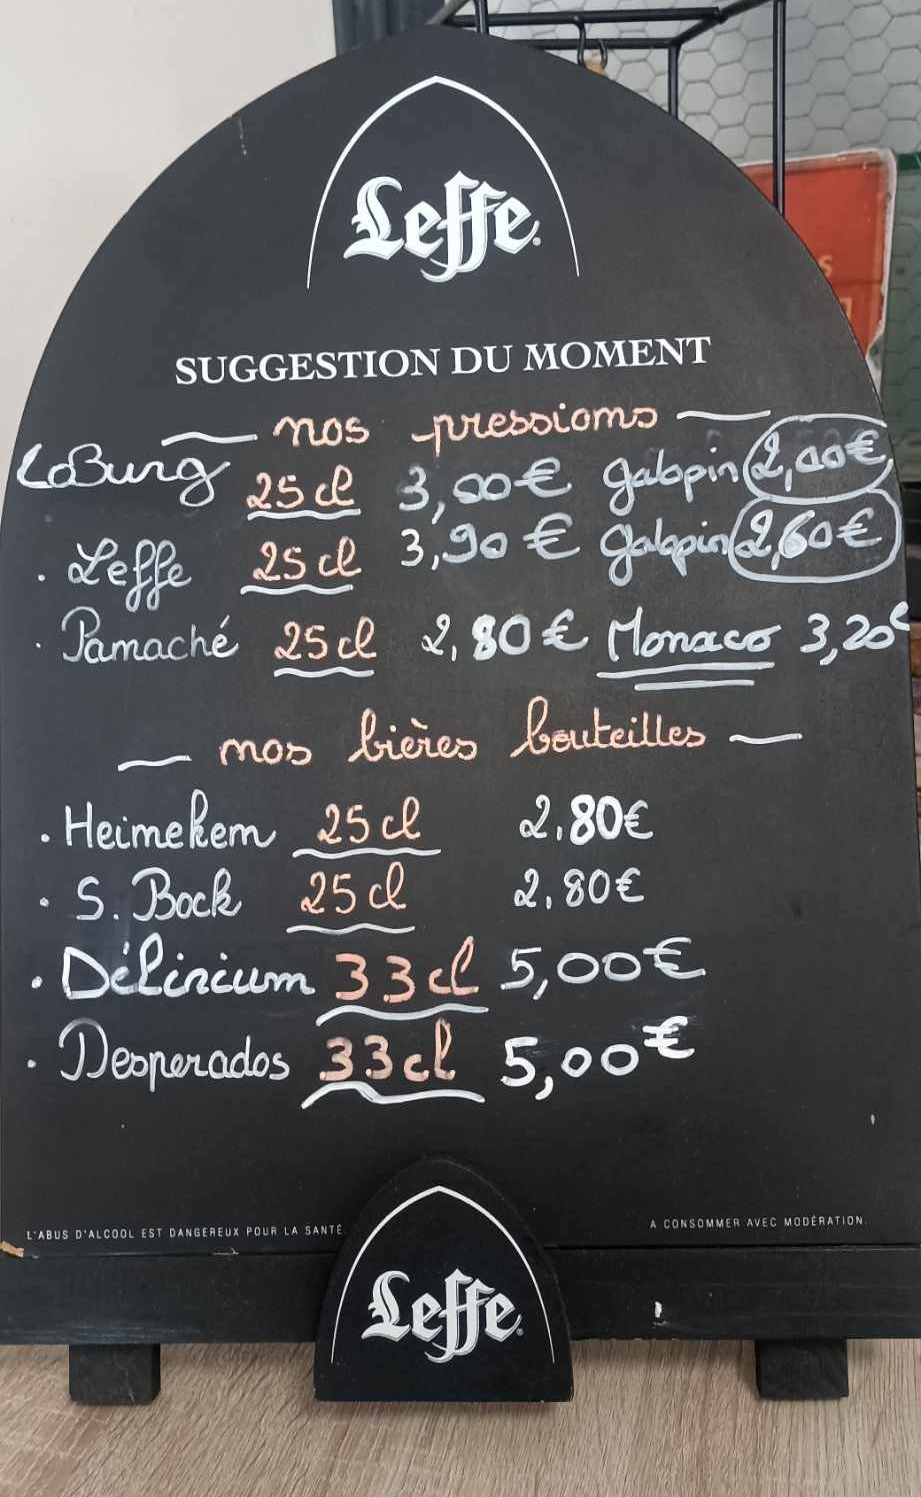 Leffe
SUGGESTION DU MOMENT
nos pressions
CoBurg 25 cl 3,00€ galopin 2,00€
. Leffe 25 cl 3,90€ galopin 2,60€
. Panaché 25 cl 2,80€ Monaco 3,20€
nos bières bouteilles
. Heineken 25 cl 2,80€
. S. Bock 25 cl 2,80€
. Délirium 33 cl 5,00€
. Desperados 33 cl 5,00€
L'ABUS D'ALCOOL EST DANGEREUX POUR LA SANTÉ. A CONSOMMER AVEC MODÉRATION.
Leffe